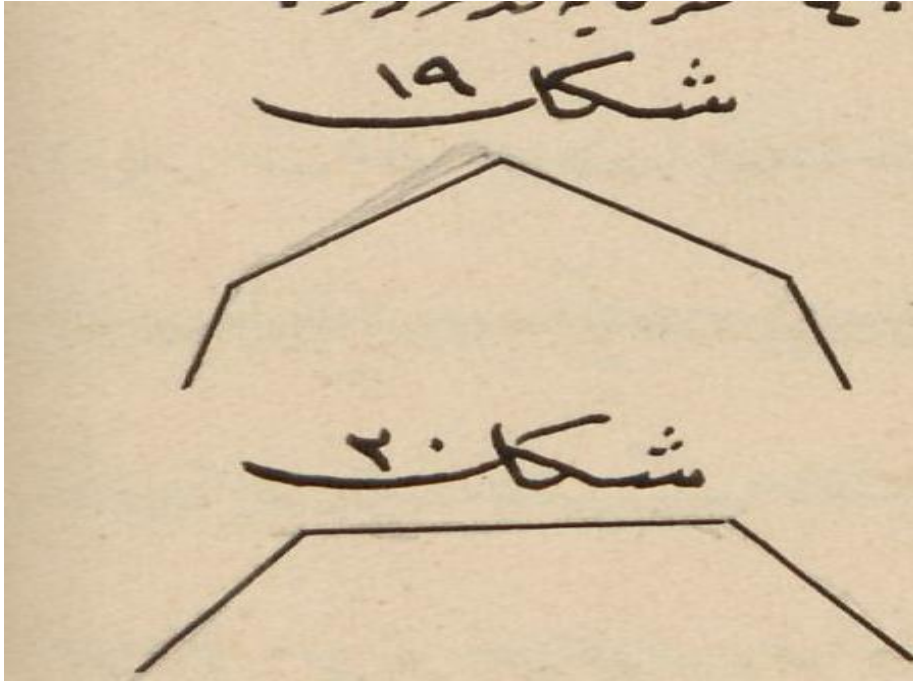 شكل ١٩
شكل ٢٠